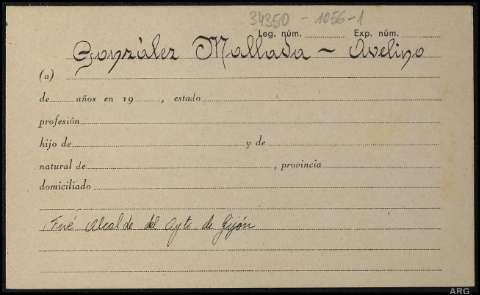 34350 - 1056-1
Leg. núm. Exp. núm.
González Mallada - Avelino
(a)
de años en 19 , estado
profesión
hijo de y de
natural de , provincia
domiciliado
Fué Alcalde del Ayto de Gijón
ARG